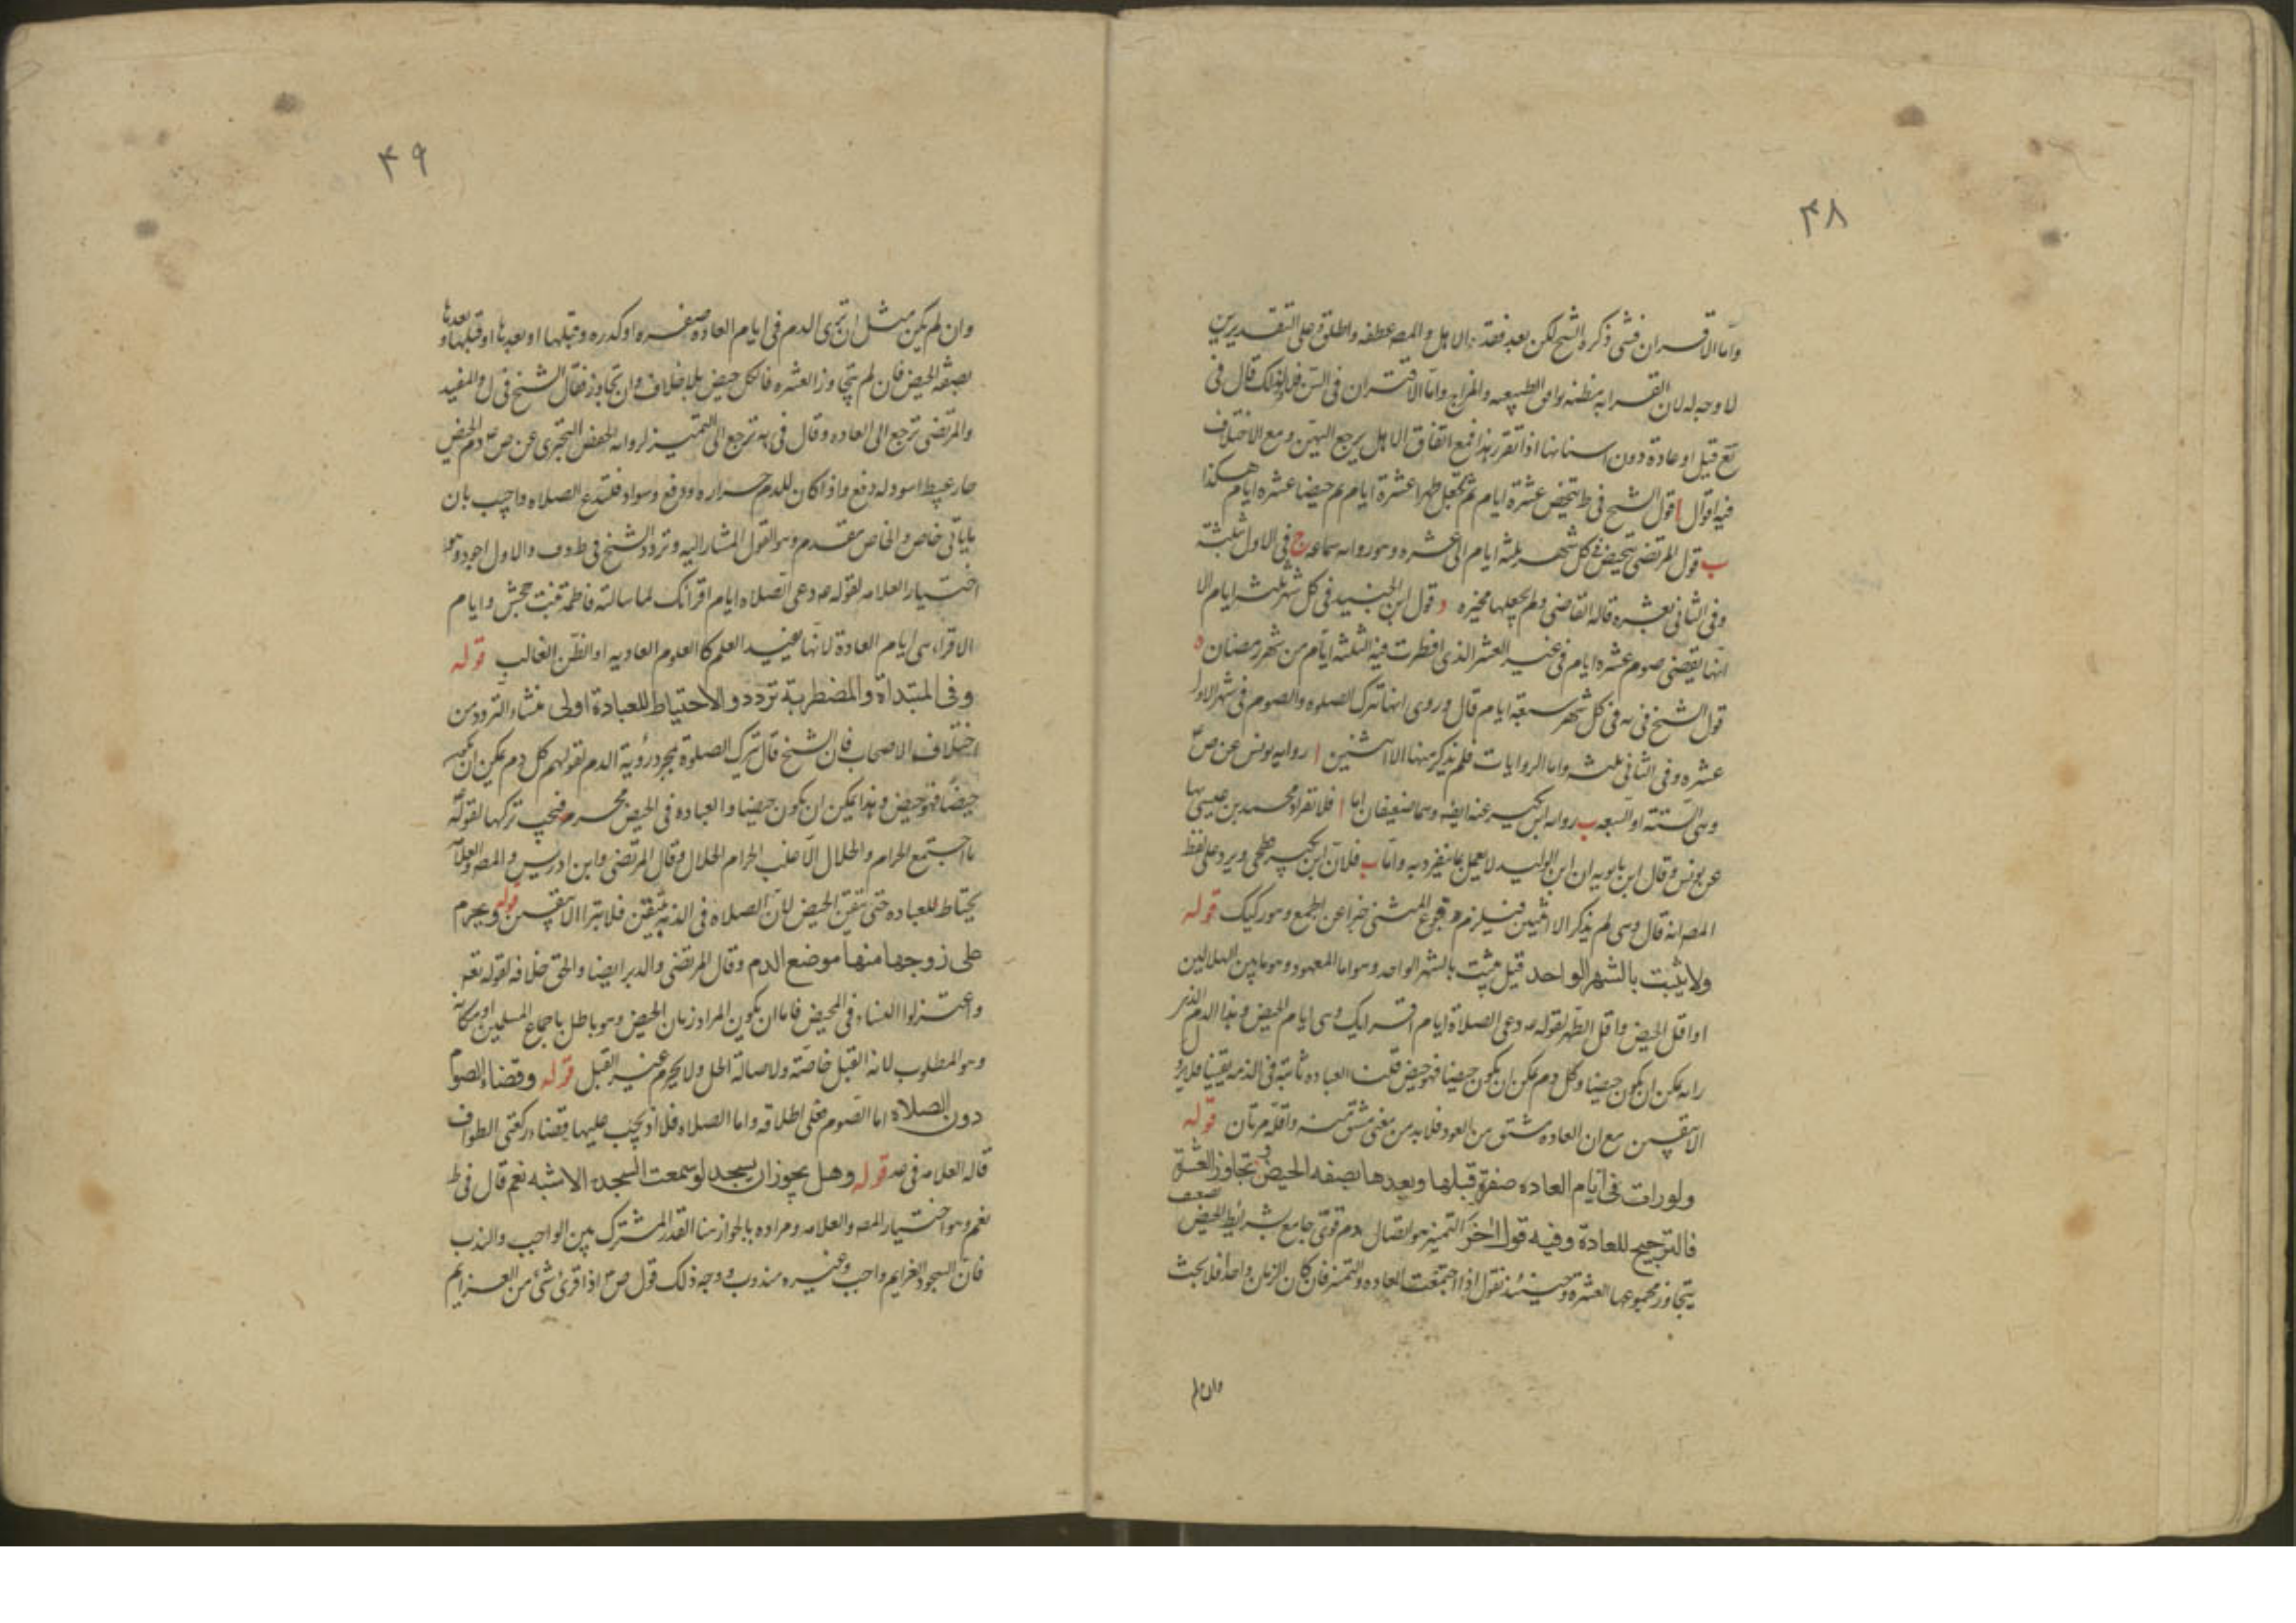 ۴۸
واما الاقران فشئ ذكره الشيخ لكن بعد فقد الاهل والمصه عطفه واطلق وعلى التقديرين
لا وجه له لان القرابه مظنه توافق الطبيعه والمزاج واما الاقتران في السن فلا ولذلك قال في
قيل او عادة ذوى اسنانها اذا تقرر هذا فمع اتفاق الاهل يرجع اليهن ومع الاختلاف
فيه اقوال ا قول الشيخ في ط تتحيض عشرة ايام ثم تجعل طهرا عشرة ايام ثم حيضا عشره ايام هكذا
ب قول المرتضى تتحيض في كل شهر ثلثه ايام الى عشره وهو روايه سماعه ج في الاول ثلثة
وفى الثانى بعشره قاله القاضى ولم يجعلها مخيره د قول ابن الجنيد في كل شهر ثلثه ايام الا
انها تقضى صوم عشره ايام في غير العشر الذى افطرت فيه الثلثه ايام من شهر رمضان ه
قول الشيخ في يه في كل شهر سبعه ايام قال وروى انها تترك الصلوه والصوم في شهر الاول
عشره وفى الثانى ثلثه واما الروايات فلم نذكر منها الا اثنتين ا روايه يونس عن ص
وهى الستة او السبعه ب روايه ابن بكير عنه ايضه وهما ضعيفان اما ا فلانفراد محمد بن عيسى بها
عن يونس وقال ابن بابويه ان ابن الوليد لا يعمل بما ينفرد به واما ب فلان ابن بكير فطحى ويرد على لفظ
المصه انه قال وهى لم يذكر الا اثنتين فيلزم وقوع المثنى خبرا عن الجمع وهو ركيك قوله
ولا يثبت بالشهر الواحد قيل يثبت بالشهر الواحد وهو اما المعهود وهو ما بين الهلالين
او اقل الحيض واقل الطهر لقوله ع دعى الصلاة ايام اقرائك وهى ايام الحيض وهذا الدم الذى
راته يمكن ان يكون حيضا وكل دم يمكن ان يكون حيضا فهو حيض قلت العباده ثابتة في الذمه يقينا فلا يزول
الا بيقين مع ان العاده مشتق من العود فلا بد من معنى مشتق منه واقله مرتان قوله
ولو رات في ايام العاده صفرة وقبلها وبعدها بصفه الحيض وتجاوز العشرة
فالترجيح للعادة وفيه قول اخر التميز هو اتصال دم قوى جامع بشرايط الحيض بضعيف
يتجاوز مجموعها العشرة وحينئذ نقول اذا اجتمعت العاده والتميز فان كان الزمان واحدا فلا بحث
وان لم
۴۹
وان لم يكن مثل ان ترى الدم في ايام العاده صفره او كدره وقبلها او بعدها او قبلها وبعدها
بصفه الحيض فان لم يتجاوز العشره فالكل حيض بلا خلاف وان تجاوز فقال الشيخ في ل والمفيد
والمرتضى ترجع الى العاده وقال في يه ترجع الى التميز لروايه حفص البخترى عن ص دم الحيض
حار عبيط اسود له دفع واذا كان للدم حراره ودفع وسواد فلتدع الصلاه واجيب بان
ماياتى خاص والخاص مقدم وهو القول المشار اليه وتردد الشيخ في ط وف والاول اجود وهو
اختيار العلامه لقوله ص دعى الصلاه ايام اقرائك لما سالته فاطمة بنت جحش وايام
الاقراء هى ايام العادة لانها تفيد العلم كالعلوم العاديه او الظن الغالب قوله
وفى المبتداة والمضطربة تردد والاحتياط للعبادة اولى منشاء التردد من
اختلاف الاصحاب فان الشيخ قال تترك الصلوة بمجرد رؤية الدم لقولهم كل دم يمكن ان يكون
حيضا فهو حيض وهذا يمكن ان يكون حيضا والعباده في الحيض محرمه فيجب تركها لقوله ع
ما اجتمع الحرام والحلال الا غلب الحرام الحلال وقال المرتضى وابن ادريس والمصه والعلامه
يحتاط للعباده حتى يتيقن الحيض لان الصلاه في الذمه متيقن فلا تبرا الا بيقين قوله ويحرم
على زوجها منها موضع الدم وقال المرتضى والدبر ايضا والحق خلافه لقوله تعه
واعتزلوا النساء في المحيض فاما ان يكون المراد زمان الحيض وهو باطل باجماع المسلمين او مكانه
وهو المطلوب لانه القبل خاصة ولاصالة الحل ولا يحرم غير القبل قوله وقضاء الصوم
دون الصلاه اما الصوم فعلى اطلاقه واما الصلاه فلا اذ يجب عليها قضاء ركعتى الطواف
قاله العلامه في يه قوله وهل يجوز ان يسجد لو سمعت السجدة الاشبه نعم قال في ط
نعم وهو اختيار المصه والعلامه ومراده بالجواز هنا القدر المشترك بين الواجب والندب
فان السجود للعزايم واجب وغيره مندوب ووجه ذلك قول ص اذا قرئ شئ من العزايم